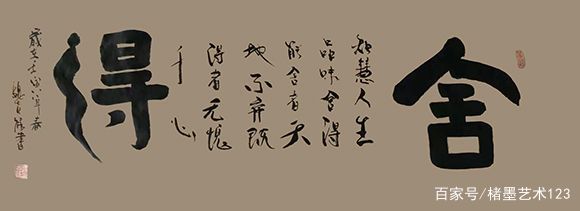 舍
智慧人生
品味舍得
能舍者天
地不弃既
得者无愧
于心
得
書
百家号/楮墨艺术123